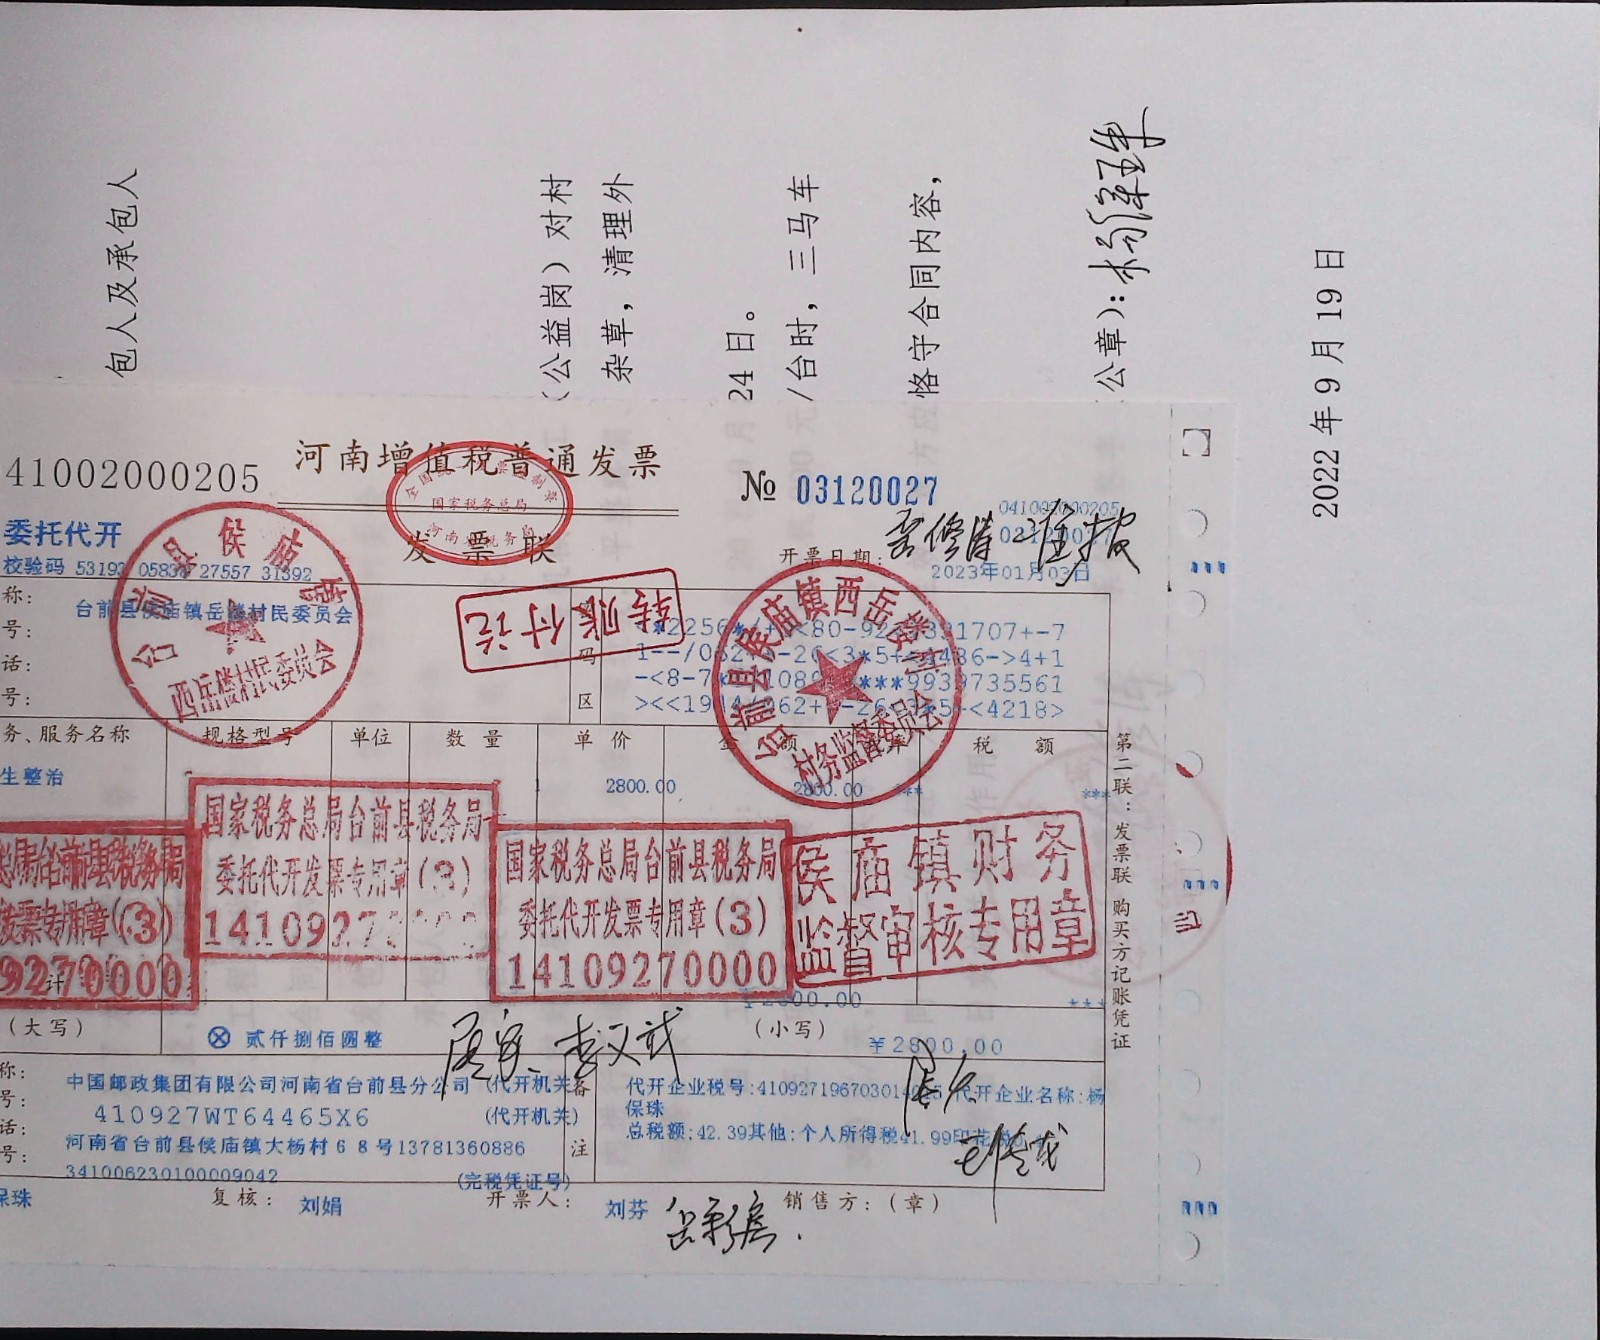 包人及承包人
（公益岗）对村
杂草，清理外
24日。
/台时，三马车
恪守合同内容，
公章）：
2022年9月19日
41002000205
河南增值税普通发票
发票联
№ 03120027
041002000205
委托代开
校验码 53193 05838 27557 31392
开票日期：
2023年01月03日
全国统一发票监制章
国家税务总局
河南省税务局
称：
台前县侯庙镇岳楼村民委员会
号：
话：
号：
台前县侯庙镇
西岳楼村民委员会
转账付讫
码
区
台前县侯庙镇西岳楼村
村务监督委员会
务、服务名称
规格型号
单位
数量
单价
金额
税额
生整治
1
2800.00
2800.00
***
国家税务总局台前县税务局
委托代开发票专用章(3)
国家税务总局台前县税务局
委托代开发票专用章(3)
14109270000
侯庙镇财务
监督审核专用章
计
￥2800.00
***
（大写）
⊗ 贰仟捌佰圆整
（小写）
￥2800.00
称：
中国邮政集团有限公司河南省台前县分公司 (代开机关)
号：
410927WT64465X6
(代开机关)
话：
河南省台前县侯庙镇大杨村68号13781360886
号：
341006230100009042
(完税凭证号)
备
注
代开企业名称:杨
保珠
总税额:42.39其他:个人所得税41.99印花税
保珠
复核：
刘娟
开票人：
刘芬
销售方：（章）
第二联：发票联 购买方记账凭证